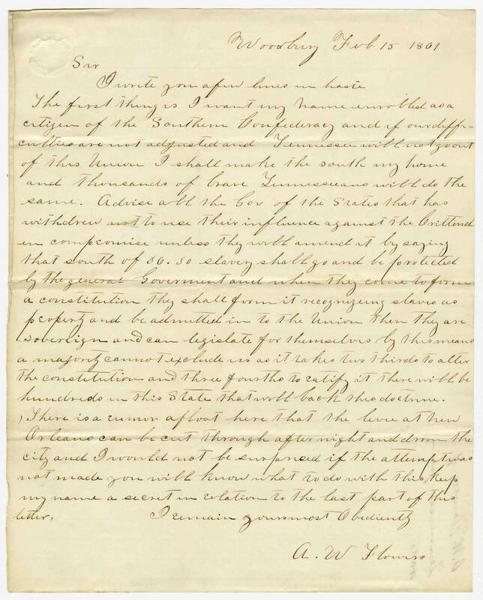 Woodbury Feb 15 1861
Sir
I write you a few lines in haste
The first thing is I want my name enrolled as a
citizen of the Southern Confederacy and if our diffi-
culties are not adjusted and Tennessee will not go out
of this Union I shall make the south my home
and thousands of brave Tennesseeans will do the
same. Advise all the Gov of the States that has
withdrew not to use their influence against the Crittend
en compromise unless they will amend it by saying
that south of 36.30 slavery shall go and be protected
by the general Goverment and when they come to form
a constitution they shall form it recognizing slaves as
property and be admitted in to the Union then they are
sovereign and can legislate for themselves by this means
a majority cannot exclude us as it takes two thirds to alter
the constitution and three fourths to ratify it there will be
hundreds in this State that will back the doctrine.
There is a rumor afloat here that the levee at New
Orleans can be cut through after night and drown the
city and I would not be surprised if the attempt was
not made you will know what to do with this, keep
my name a secret in relation to the last part of this
letter, I remain yours most Obediently
A. W Flowers